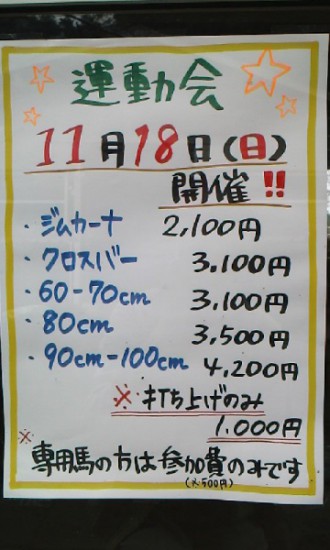 運動会
11月18日(日)
開催!!
・ジムカーナ 2,100円
・クロスバー 3,100円
・60-70cm 3,100円
・80cm 3,500円
・90cm-100cm 4,200円
※打ち上げのみ
1,000円
※専用馬の方は参加費のみです
(¥500円)